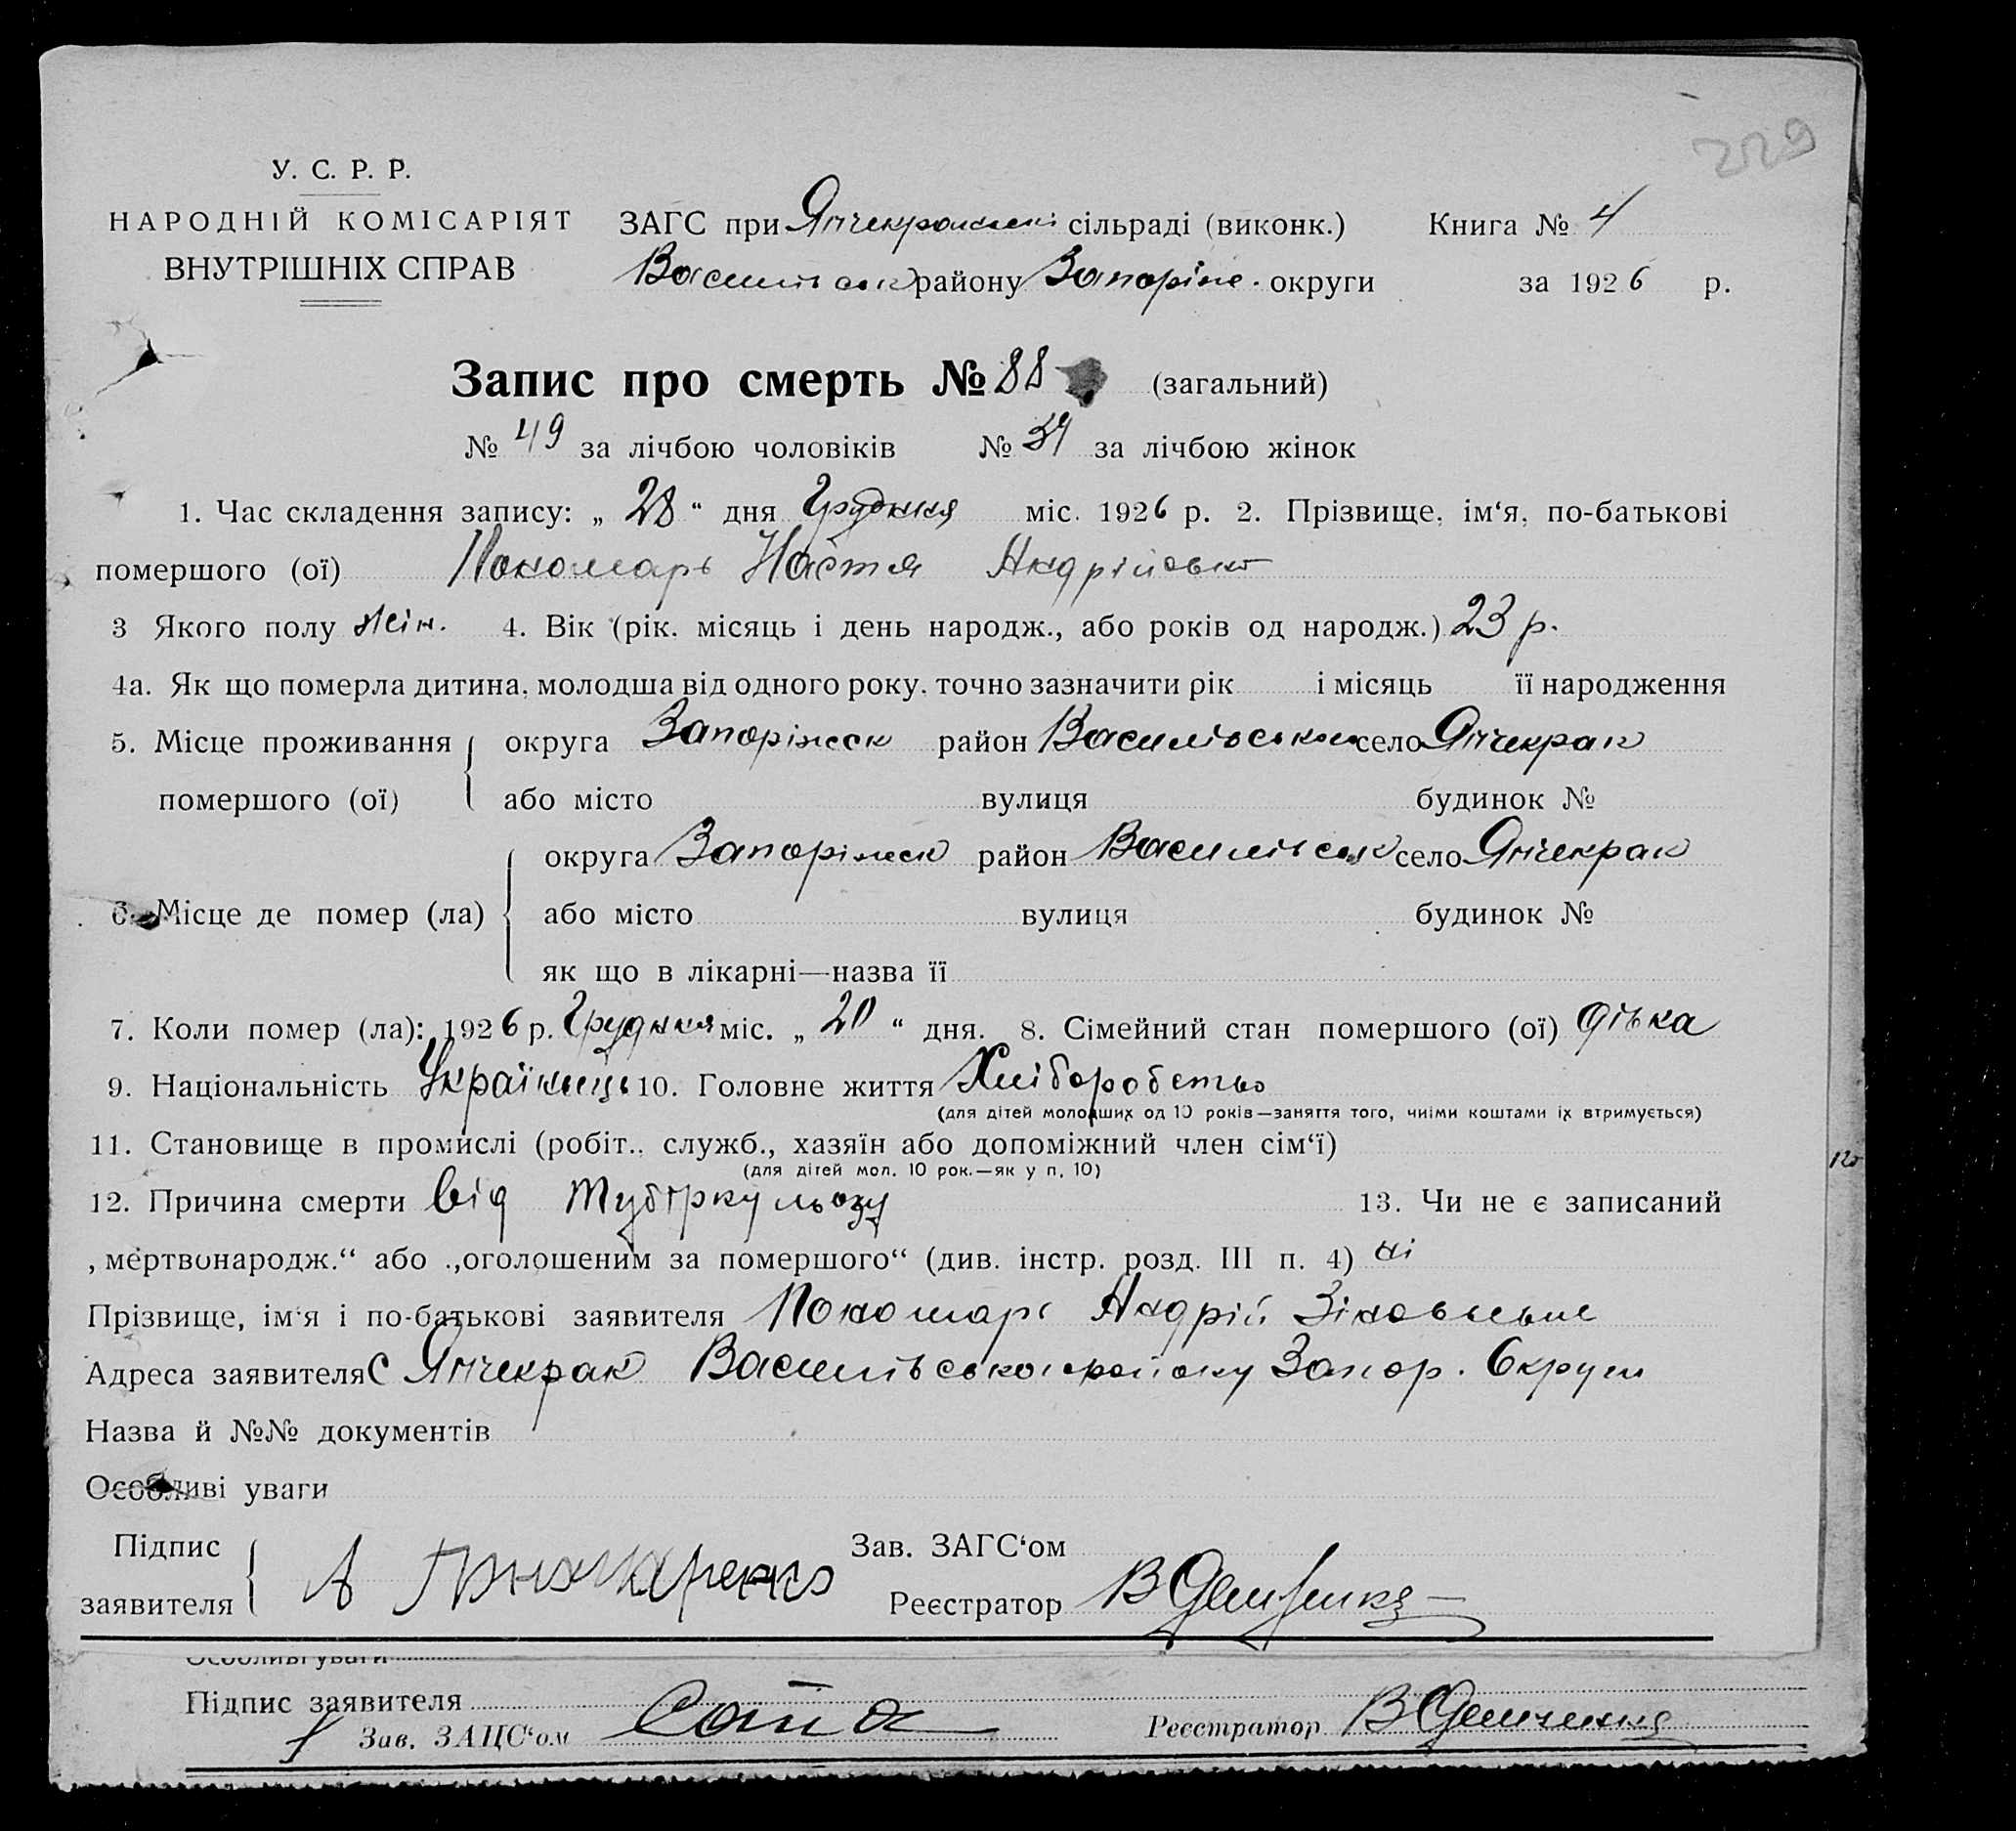 229
У. С. Р. Р.
НАРОДНІЙ КОМІСАРІЯТ
ВНУТРІШНІХ СПРАВ
ЗАГС при Янчекрацькій сільраді (виконк.) Книга № 4
району Запоріж. округи за 1926 р.
Запис про смерть № 88 (загальний)
№ 49 за лічбою чоловіків № 39 за лічбою жінок
1. Час складення запису: „ 28 “ дня Грудня міс. 1926 р. 2. Прізвище, ім‘я, по-батькові
помершого (ої) Пономарь Настя Андрійовна
3 Якого полу жін. 4. Вік (рік. місяць і день народж., або років од народж.) 23 р.
4а. Як що померла дитина, молодша від одного року, точно зазначити рік і місяць її народження
5. Місце проживання помершого (ої) округа Запоріжск район Василівськ село Янчекрак
або місто вулиця будинок №
6. Місце де помер (ла) округа Запоріжск район Василівськ село Янчекрак
або місто вулиця будинок №
як що в лікарні—назва її
7. Коли помер (ла): 1926 р. Грудня міс. „ 20 “ дня. 8. Сімейний стан помершого (ої) дівка
9. Національність Українець 10. Головне життя Хліборобство
(для дітей молодших од 10 років—заняття того, чиїми коштами їх втримується)
11. Становище в промислі (робіт., служб., хазяїн або допоміжний член сім‘ї)
(для дітей мол. 10 рок.—як у п. 10)
12. Причина смерти від туберкульозу 13. Чи не є записаний
„мертвонародж.“ або „оголошеним за помершого“ (див. інстр. розд. III п. 4) ні
Прізвище, ім‘я і по-батькові заявителя Пономарь Андрій
Адреса заявителя С Янчекрак Василівського району Запор. Округи
Назва й №№ документів
Особливі уваги
Підпис заявителя А Зав. ЗАГС‘ом
Реєстратор В
Особливі уваги
Підпис заявителя
Зав. ЗАЦС‘ом Реєстратор В